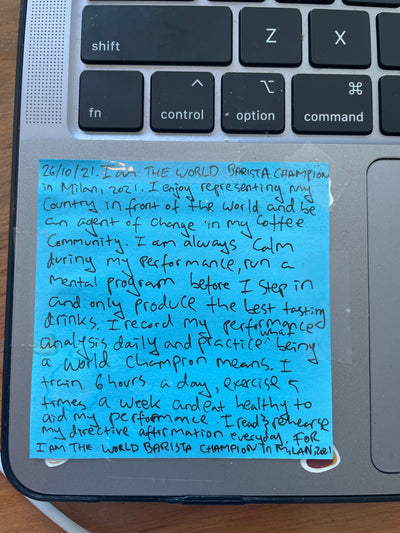 shift
Z
X
fn
^
control
⌥
option
⌘
command
26/10/21. I am THE WORLD BARISTA CHAMPION
in Milan, 2021. I enjoy representing my
Country in front of the world and be
an agent of change in my Coffee
Community. I am always Calm
during my performance, run a
mental program before I step in
and only produce the best tasting
drinks. I record my performance
analysis daily and practice what being
a world Champion means. I
train 6 hours a day, exercise 5
times a week and eat healthy to
aid my performance. I read & rehearse
my directive affirmation everyday. FOR
I AM THE WORLD BARISTA CHAMPION in MILAN, 2021